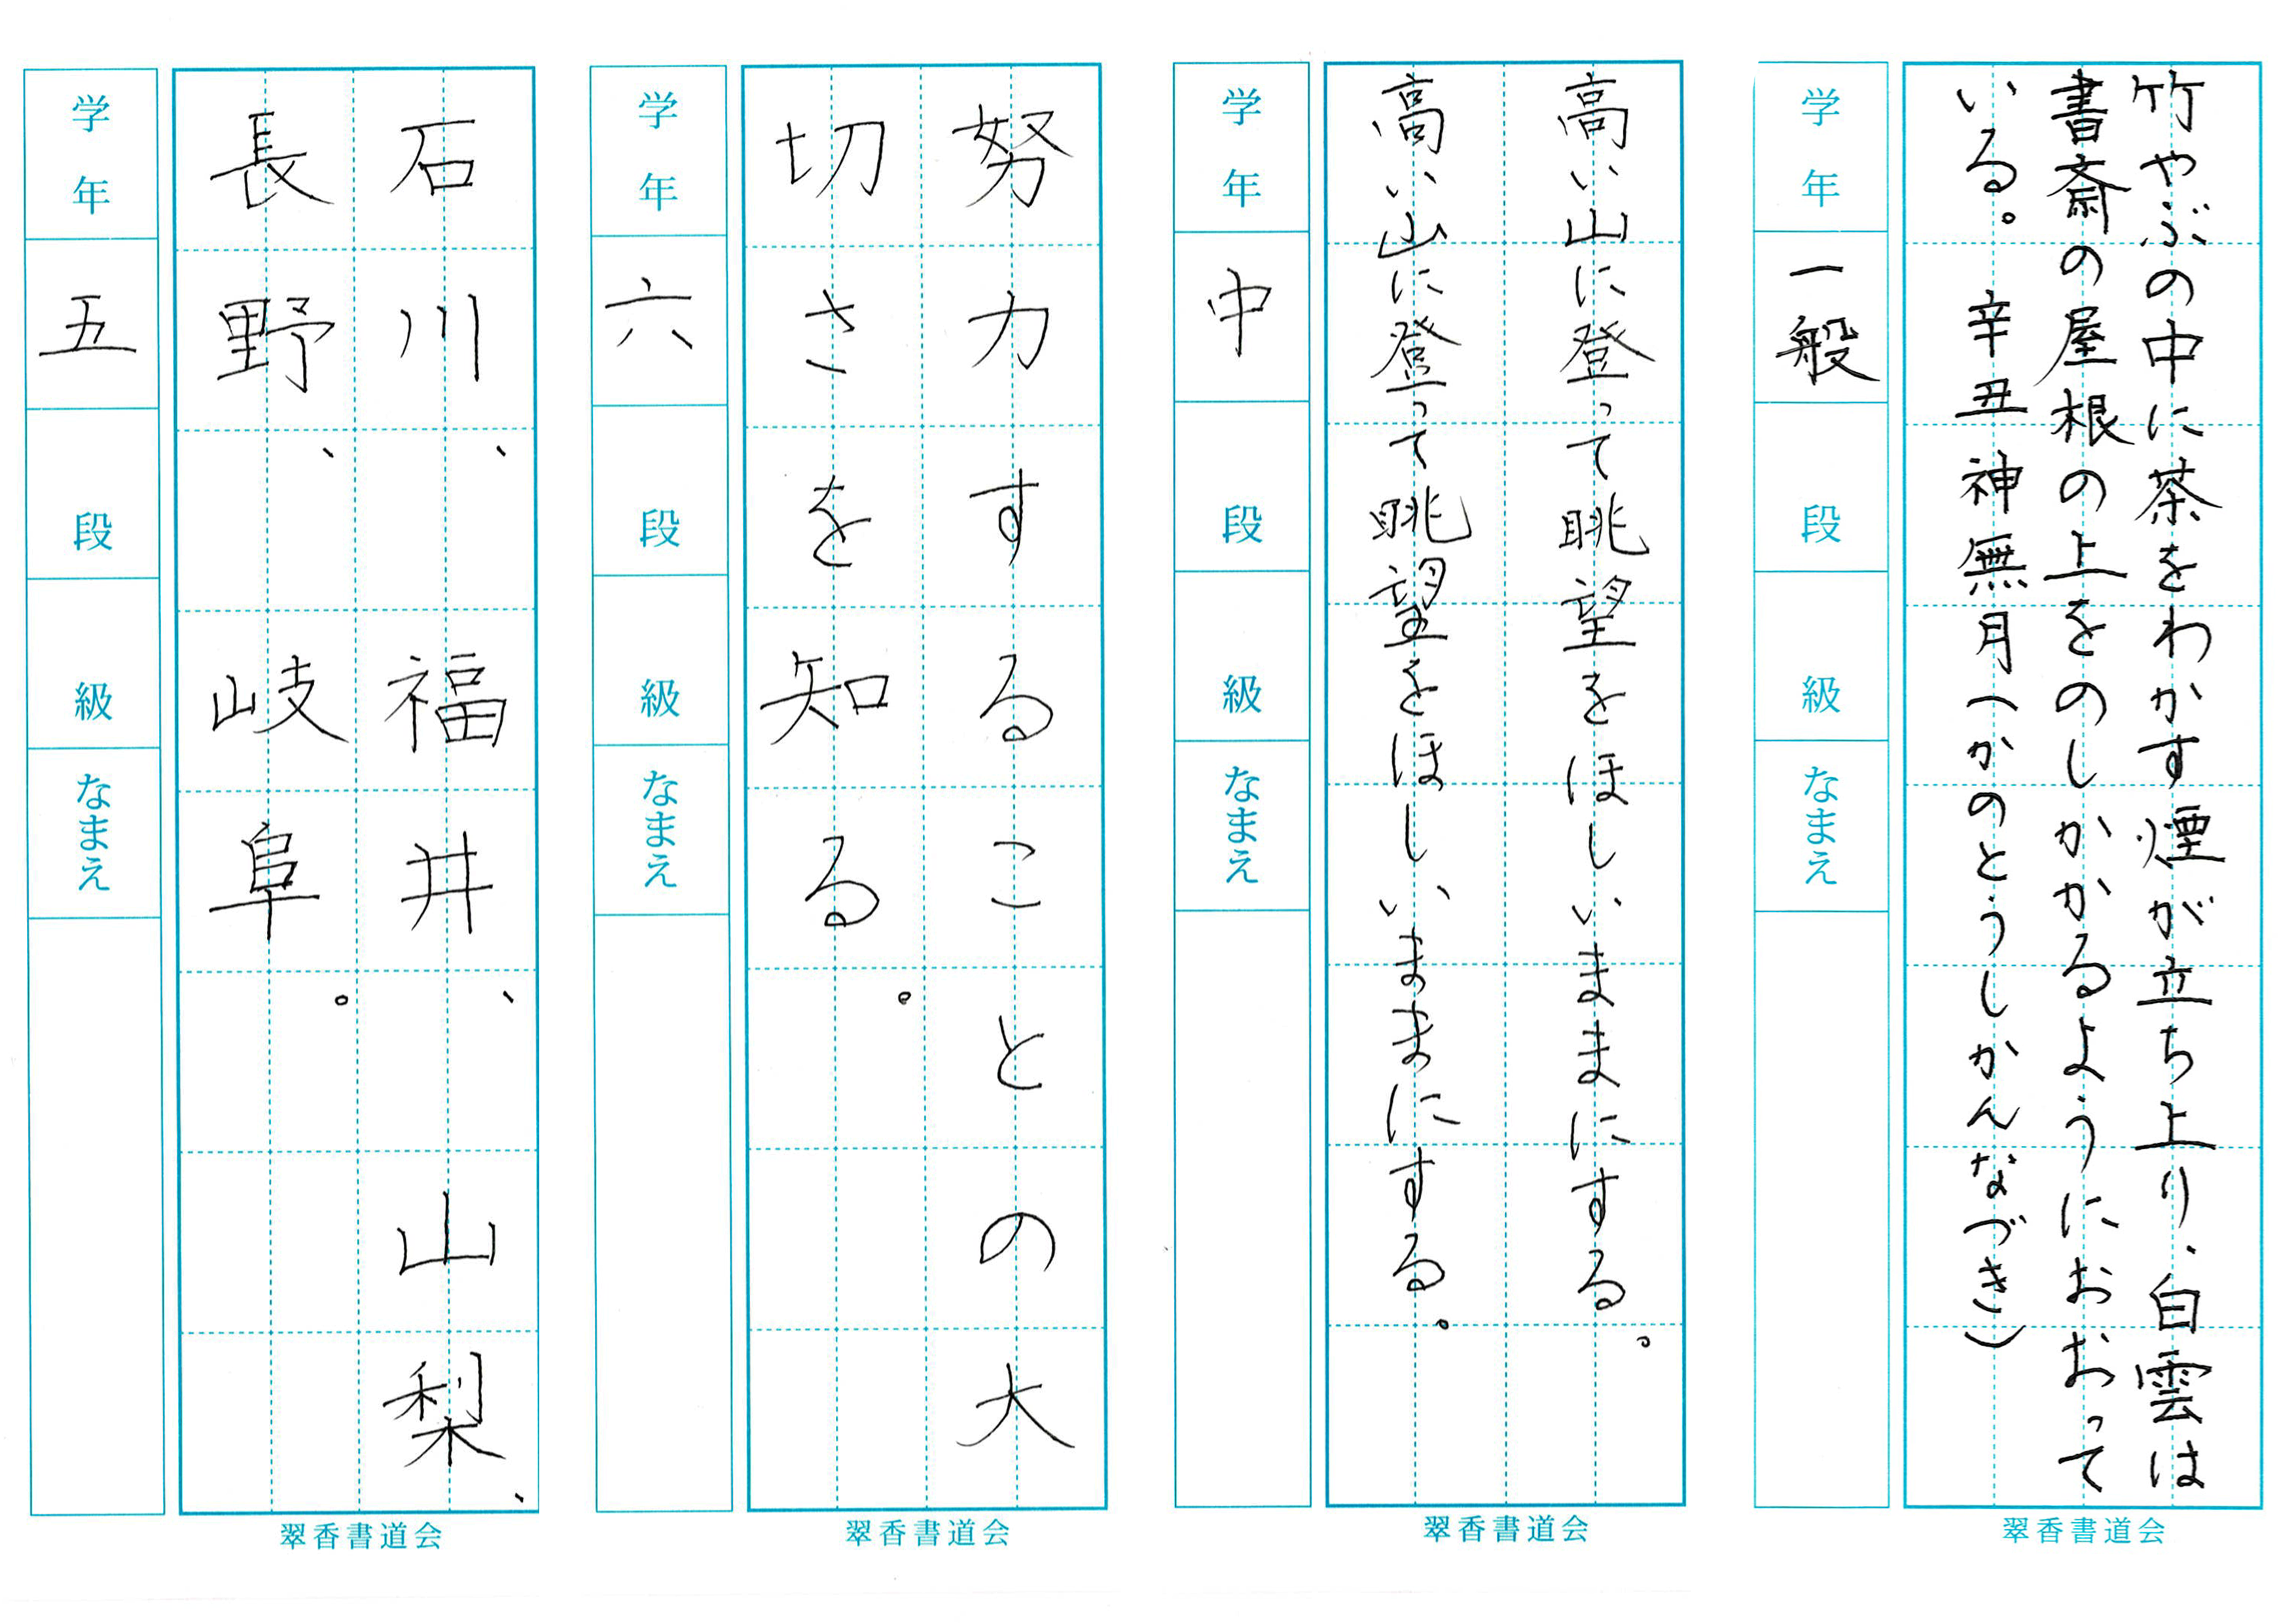 竹やぶの中に茶をわかす煙が立ち上り、白雲は
書斎の屋根の上をのしかかるようにおおって
いる。 辛丑 神無月(かのとうしかんなづき)
学年
一般
段
級
なまえ
翠香書道会
高い山に登って眺望をほしいままにする。
高い山に登って眺望をほしいままにする。
学年
中
段
級
なまえ
翠香書道会
努力することの大
切さを知る。
学年
六
段
級
なまえ
翠香書道会
石川、福井、山梨、
長野、岐阜。
学年
五
段
級
なまえ
翠香書道会